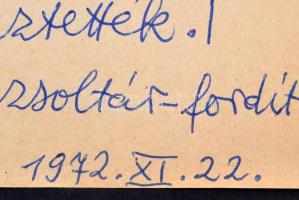 ztették.)
zsoltár-fordít
1972.XI.22.